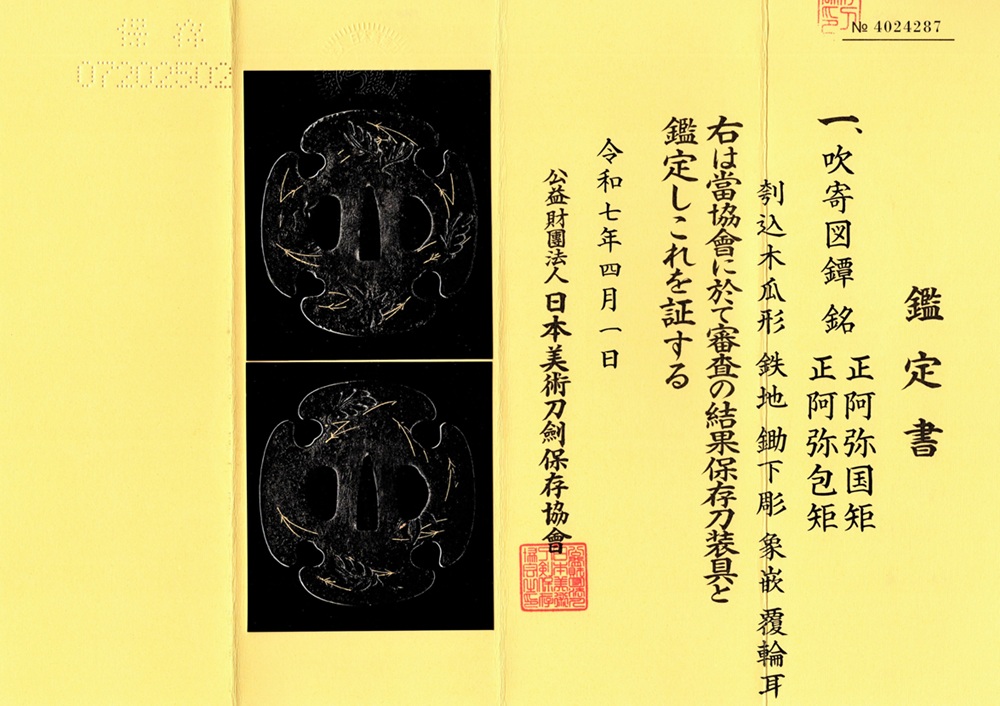 № 4024287
鑑定書
一、吹寄図鐔 銘 正阿弥国矩
正阿弥包矩
刳込木瓜形 鉄地 鋤下彫 象嵌 覆輪耳
右は當協會に於て審査の結果保存刀装具と
鑑定しこれを証する
令和七年四月一日
公益財團法人 日本美術刀劍保存協會
保存
07202502